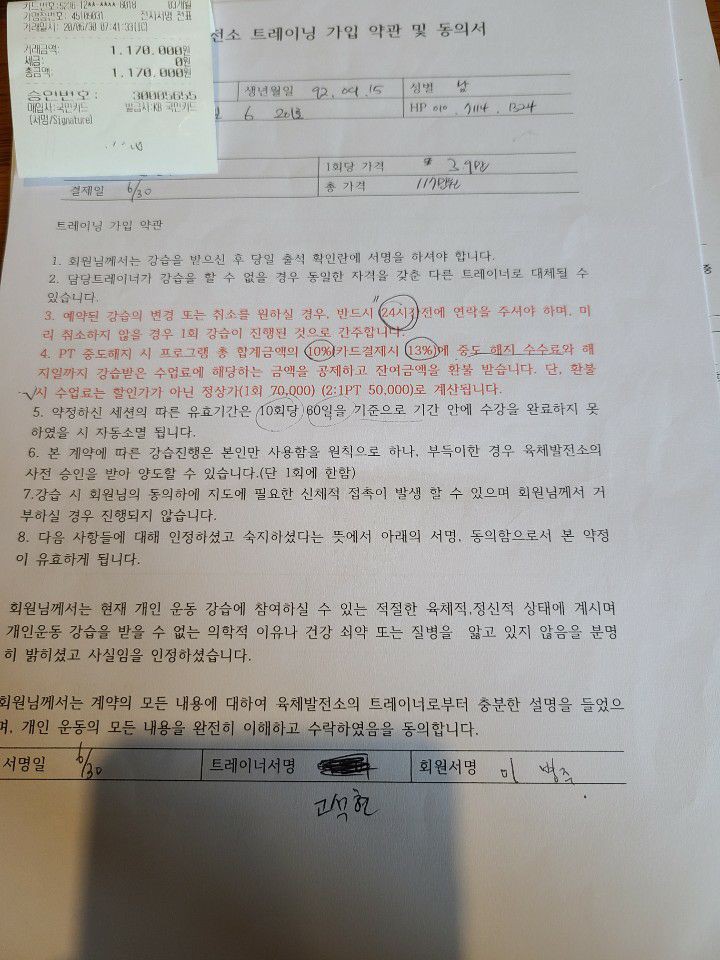 카드번호:5236-12**-****-6018 03개월
가맹점번호: 45109031 전자서명 전표
거래일시: 20/06/30 07:41:33(IC)
거래금액: 1,170,000원
세금: 0원
총금액: 1,170,000원
승인번호: 30005655
매입사:국민카드 발급사:KB 국민카드
(서명/Signature)
전소 트레이닝 가입 약관 및 동의서
생년월일 92.09.15 성별 남
6 201호 HP 010. 7114. 1324
1회당 가격 3.9만
결제일 6/30 총 가격 117만원
트레이닝 가입 약관
1. 회원님께서는 강습을 받으신 후 당일 출석 확인란에 서명을 하셔야 합니다.
2. 담당트레이너가 강습을 할 수 없을 경우 동일한 자격을 갖춘 다른 트레이너로 대체될 수
있습니다.
3. 예약된 강습의 변경 또는 취소를 원하실 경우, 반드시 24시간전에 연락을 주셔야 하며, 미
리 취소하지 않을 경우 1회 강습이 진행된 것으로 간주합니다.
4. PT 중도해지 시 프로그램 총 합계금액의 10%(카드결제시 13%)에 중도 해지 수수료와 해
지일까지 강습받은 수업료에 해당하는 금액을 공제하고 잔여금액을 환불 받습니다. 단, 환불
시 수업료는 할인가가 아닌 정상가(1회 70,000) (2:1PT 50,000)로 계산됩니다.
5. 약정하신 세션의 따른 유효기간은 10회당 60일을 기준으로 기간 안에 수강을 완료하지 못
하였을 시 자동소멸 됩니다.
6. 본 계약에 따른 강습진행은 본인만 사용함을 원칙으로 하나, 부득이한 경우 육체발전소의
사전 승인을 받아 양도할 수 있습니다.(단 1회에 한함)
7.강습 시 회원님의 동의하에 지도에 필요한 신체적 접촉이 발생 할 수 있으며 회원님께서 거
부하실 경우 진행되지 않습니다.
8. 다음 사항들에 대해 인정하셨고 숙지하셨다는 뜻에서 아래의 서명, 동의함으로서 본 약정
이 유효하게 됩니다.
회원님께서는 현재 개인 운동 강습에 참여하실 수 있는 적절한 육체적,정신적 상태에 계시며
개인운동 강습을 받을 수 없는 의학적 이유나 건강 쇠약 또는 질병을 앓고 있지 않음을 분명
히 밝히셨고 사실임을 인정하셨습니다.
회원님께서는 계약의 모든 내용에 대하여 육체발전소의 트레이너로부터 충분한 설명을 들었으
며, 개인 운동의 모든 내용을 완전히 이해하고 수락하였음을 동의합니다.
서명일 6/30 트레이너서명 회원서명 이 병주
고석헌